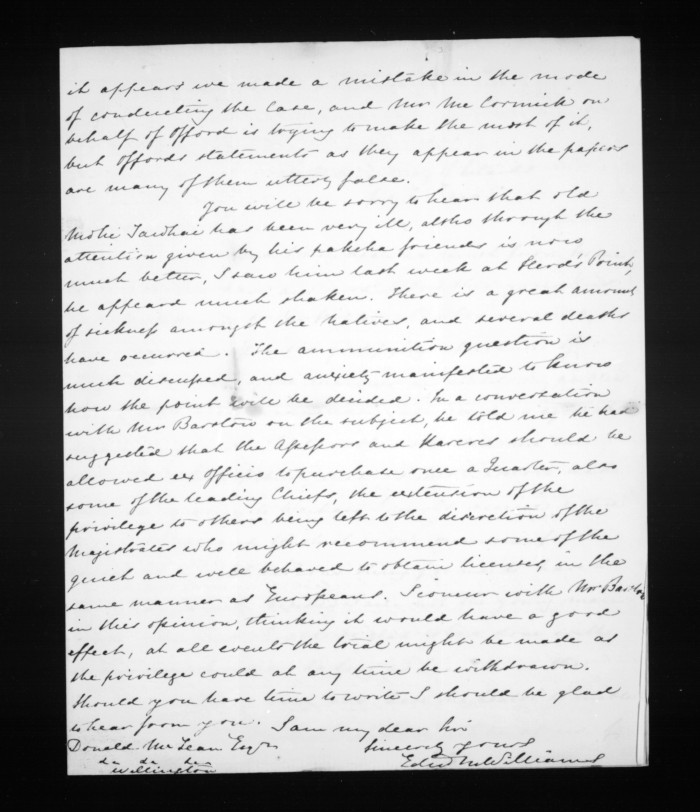 it appears we made a mistake in the mode
of conducting the Case, and Mr McCormick on
behalf of Offord is trying to make the most of it,
but Offords statements as they appear in the papers
are many of them utterly false.
You will be sorry to hear that old
Mohi Tawhai has been very ill, altho through the
attention given by his pakeha friends is now
much better, I saw him last week at Herd's Point,
he appeard much shaken. There is a great amount
of sickness amongst the Natives, and several deaths
have occurred. The ammunition question is
much discussed, and anxiety manifested to know
how the point will be decided. In a conversation
with Mr Barstow on the subject, he told me he had
suggested that the Assessors and Kareres should be
allowed ex Officio to purchase once a Quarter, also
some of the leading Chiefs, the extension of the
privilege to others being left to the discretion of the
Magistrates who might recommend some of the
quiet and well behaved to obtain licenses, in the
same manner as Europeans. I concur with Mr Barstow
in this opinion, thinking it would have a good
effect, at all events the trial might be made as
the privilege could at any time be withdrawn.
Should you have time to write I should be glad
to hear from you. I am my dear Sir
Donald McLean Esqre Sincerely yours
Wellington Edwd M Williams